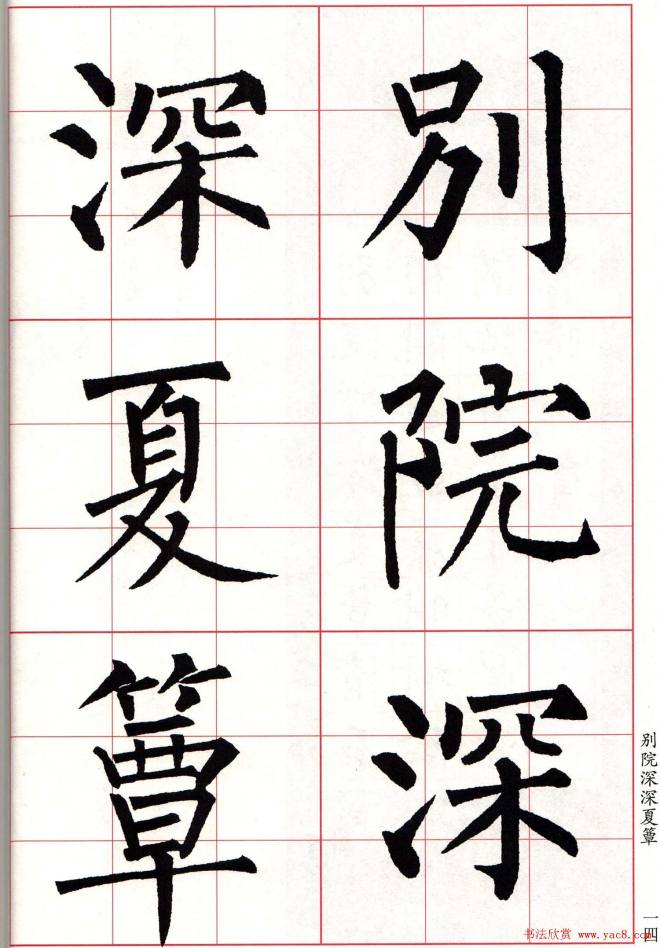 別院深
深夏簟
别院深深夏簟
一四
书法欣赏 www.yac8.com